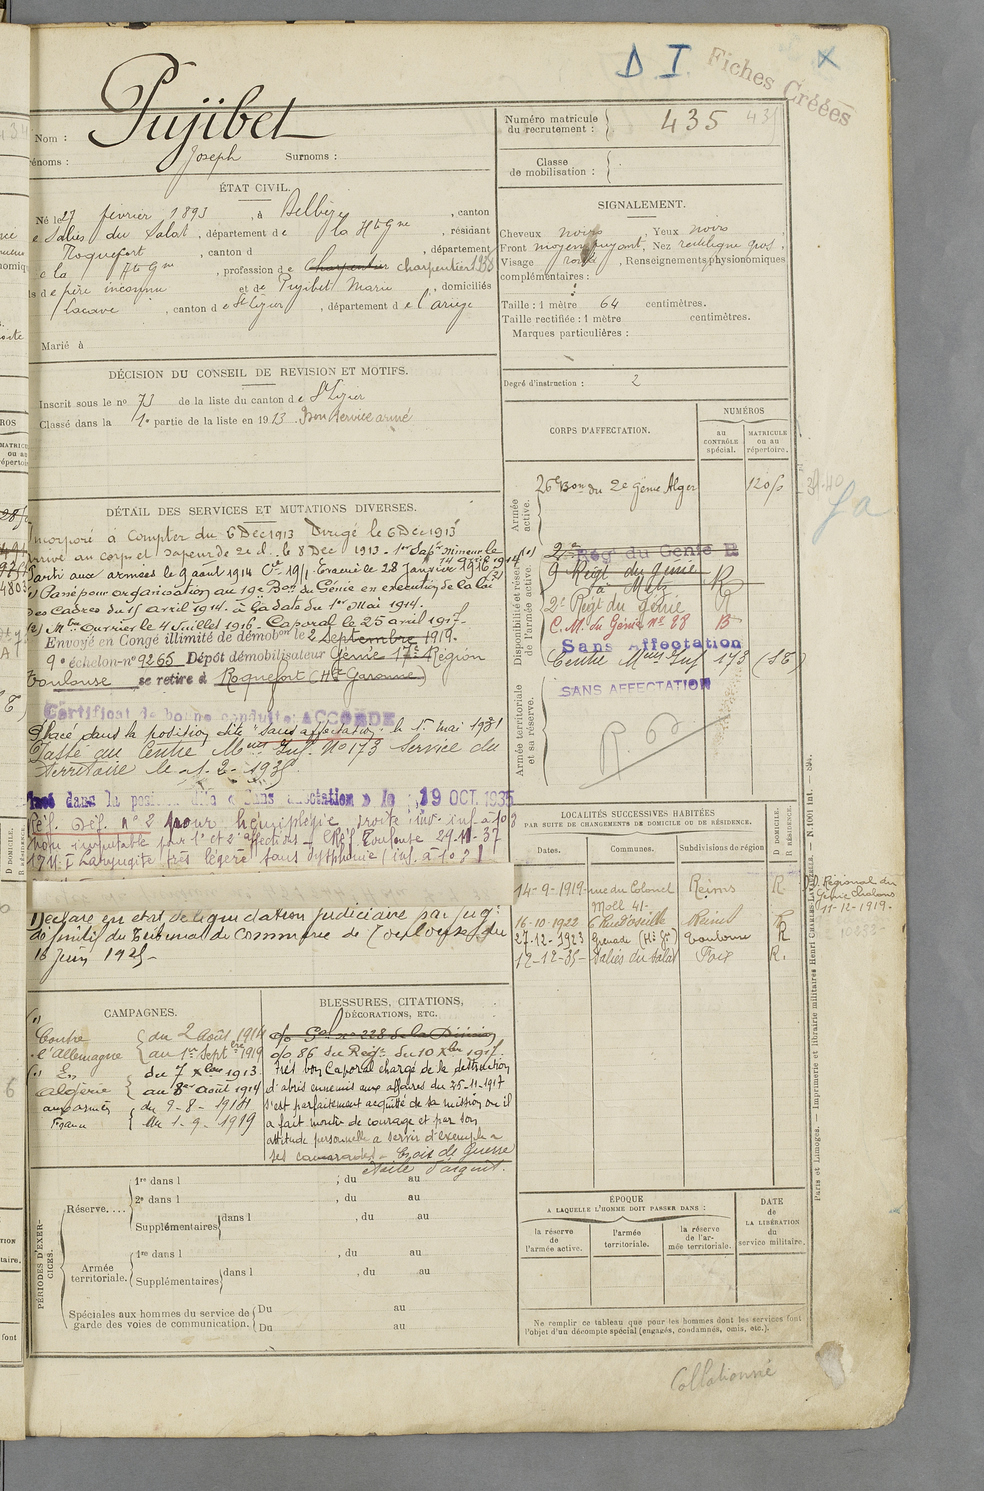 D I
Fiches Créées
X
Nom : Pujibet
Prénoms : Joseph Surnoms :
Numéro matricule du recrutement : 435
Classe de mobilisation :
ÉTAT CIVIL.
Né le 27 février 1893, à Belbèze, canton
de Salies du Salat, département de la Hte Gne, résidant
Roquefort, canton d , département
de la Hte Gne, profession de charpentier
fils de père inconnu et de Pujibet Marie, domiciliés
Lacave, canton de St Lizier, département de l'ariège
Marié à
SIGNALEMENT.
Cheveux noirs, Yeux noirs
Front moyen fuyant, Nez rectiligne gros,
Visage rond, Renseignements physionomiques
complémentaires :
Taille : 1 mètre 64 centimètres.
Taille rectifiée : 1 mètre centimètres.
Marques particulières :
Degré d'instruction : 2
DÉCISION DU CONSEIL DE REVISION ET MOTIFS.
Inscrit sous le no 73 de la liste du canton de St Lizier
Classé dans la 1e partie de la liste en 1913 Bon service armé
DÉTAIL DES SERVICES ET MUTATIONS DIVERSES.
Incorporé à compter du 6 Déc 1913 Dirigé le 6 Déc 1913
Arrivé au corps et sapeur de 2e cl. le 8 Déc 1913 - 1er Sapr mineur le
Parti aux armées le 9 août 1914
Passé pour organisation au 19e Bon du Génie en exécution de la loi
des Cadres du 15 avril 1914 à la date du 1er Mai 1914.
Mtre Ouvrier le 4 Juillet 1916 - Caporal le 25 avril 1917
Envoyé en Congé illimité de démobon le 2 septembre 1919.
9e échelon - no 9265 Dépôt démobilisateur Génie 17e Région
Toulouse se retire à Roquefort (Hte Garonne)
Certificat de bonne conduite ACCORDÉ
Placé dans la position dite "sans affectation" le 1er mai 1931
Passé au Centre Meur Inf. No 173 Service du
Territoire le
Placé dans la position dite « Sans affectation » le 19 OCT. 1935
Réf. Déf. No 2 pour hémiplégie droite inv. inf. à 10%
non imputable pour 1e et 2e affections - CRéf. Toulouse 29-11-37
Laryngite très légère sans dysphonie inf. à 10%
Déclaré en état de liquidation judiciaire par jugt
définitif du Tribunal de Commerce de Toulouse du
juin 1925 -
CORPS D'AFFECTATION.
NUMÉROS
au CONTRÔLE spécial.
MATRICULE ou au répertoire.
Armée active.
26e Bon du 2e Génie Alger
Disponibilité et réserve de l'armée active.
2e Régt du Génie R
9e Régt du génie
à Metz R
2e Régt du Génie R
C. M. du Génie no 88 B
Sans Affectation
Centre Meur Inf 173 (ST)
Armée territoriale et sa réserve.
SANS AFFECTATION
LOCALITÉS SUCCESSIVES HABITÉES
PAR SUITE DE CHANGEMENTS DE DOMICILE OU DE RÉSIDENCE.
Dates. Communes. Subdivisions de région D DOMICILE. R RÉSIDENCE.
14-9-1919 rue du Colonel Moll 41 - Reims R
16-10-1922 Reims R
27-12-1923 Grenade (Hte Gne) Toulouse R
12-12-35 - Salies du Salat Foix R.
D. Régional du Génie Chalons 11-12-1919.
CAMPAGNES.
Contre l'Allemagne du 2 Août 1914
au 1er Septbre 1919
En Algérie du 7 Xbre 1913
au 8 août 1914
aux armées du 9-8-1914
France au 1-9-1919
BLESSURES, CITATIONS, DÉCORATIONS, ETC.
o/o Gal no 228 de la Division
o/o 86 du Régt du 10 Xbre 1917.
Très bon Caporal chargé de la destruction
d'abris ennemis aux affaires du 25-11-1917
s'est parfaitement acquitté de sa mission où il
a fait montre de courage et par son
attitude personnelle a servi d'exemple à
ses camarades - Croix de Guerre
étoile d'argent.
PÉRIODES D'EXERCICES.
Réserve....
1re dans l , du au
2e dans l , du au
Supplémentaires dans l , du au
Armée territoriale.
1re dans l , du au
Supplémentaires dans l , du au
Spéciales aux hommes du service de garde des voies de communication.
Du au
Du au
ÉPOQUE
A LAQUELLE L'HOMME DOIT PASSER DANS :
la réserve de l'armée active.
l'armée territoriale.
la réserve de l'armée territoriale.
DATE de LA LIBÉRATION du service militaire.
Ne remplir ce tableau que pour les hommes dont les services font
l'objet d'un décompte spécial (engagés, condamnés, omis, etc.).
Paris et Limoges. — Imprimerie et librairie militaires Henri CHARLES-LAVAUZELLE. — N. 1001 Int. —
Collationné